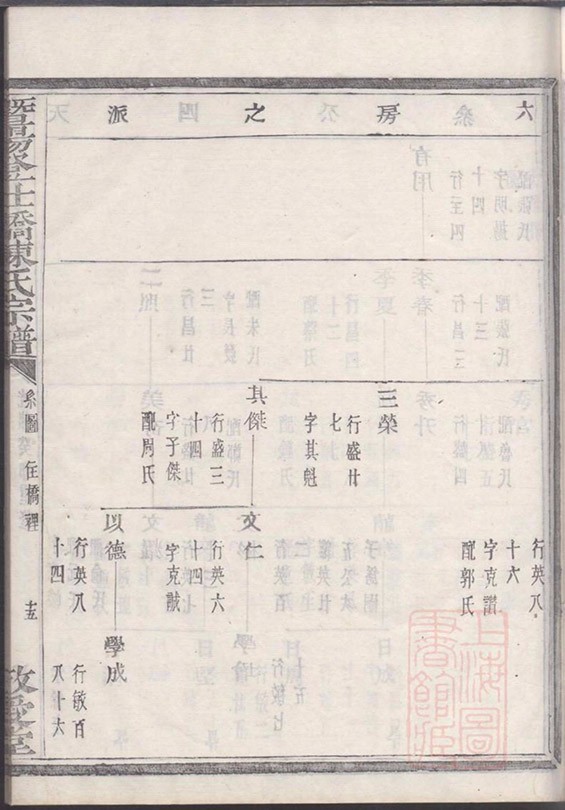 六房之派
行英八
十六
字克讃
配郭氏
三榮
行盛廿
七
字其魁
其傑
行盛三
十四
字子傑
配周氏
文仁
行英六
十四
字克誠
以德
行英八
十四
學成
行敏百
八十六
暨陽登仕橋陳氏宗譜
系圖
任橋裡
十五
敬愛堂
上海圖書館藏